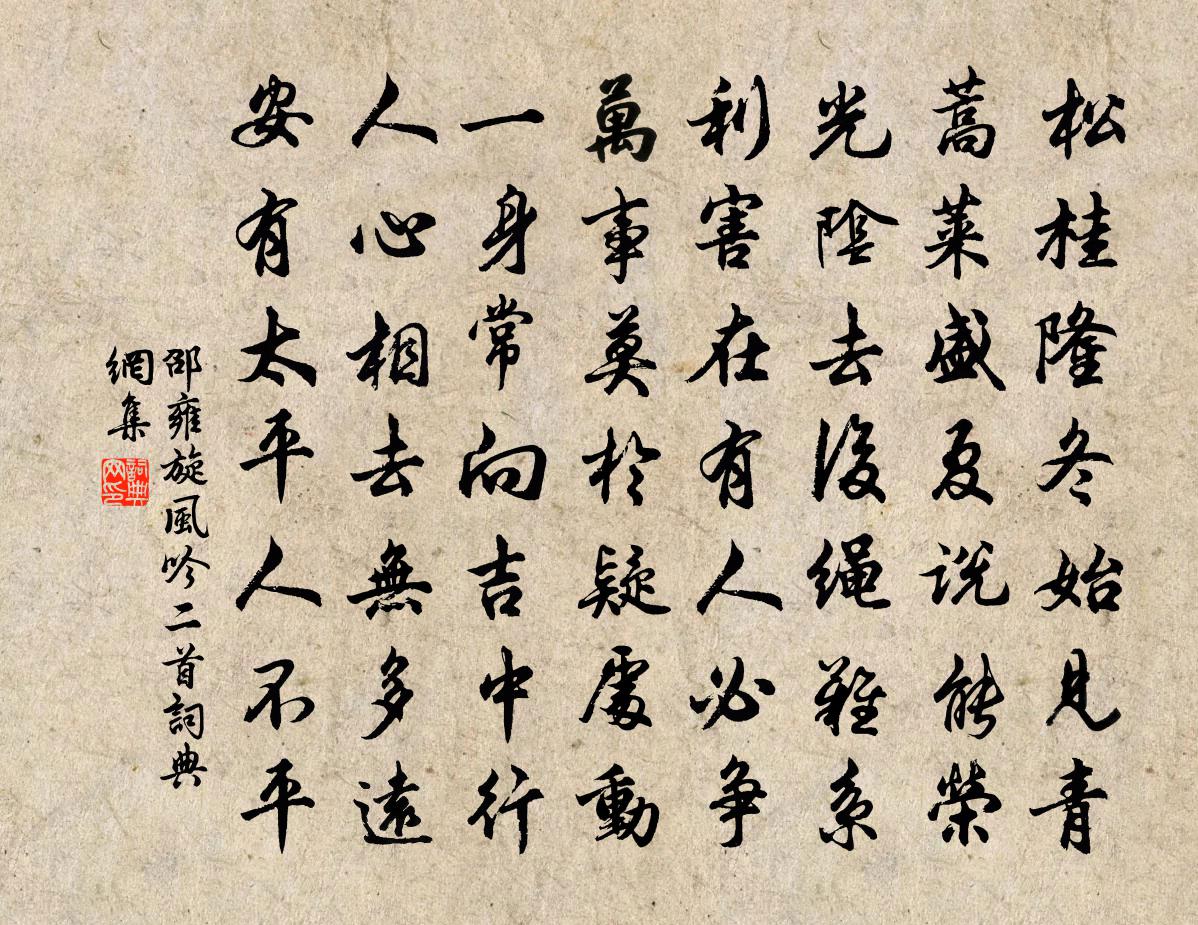 松桂隆冬始見青
蒿萊盛夏說能榮
光陰去後繩難系
利害在有人必爭
萬事莫於疑處動
一身常向吉中行
人心相去無多遠
安有太平人不平
邵雍旋風吟二首詞典
網集
詞典
网印